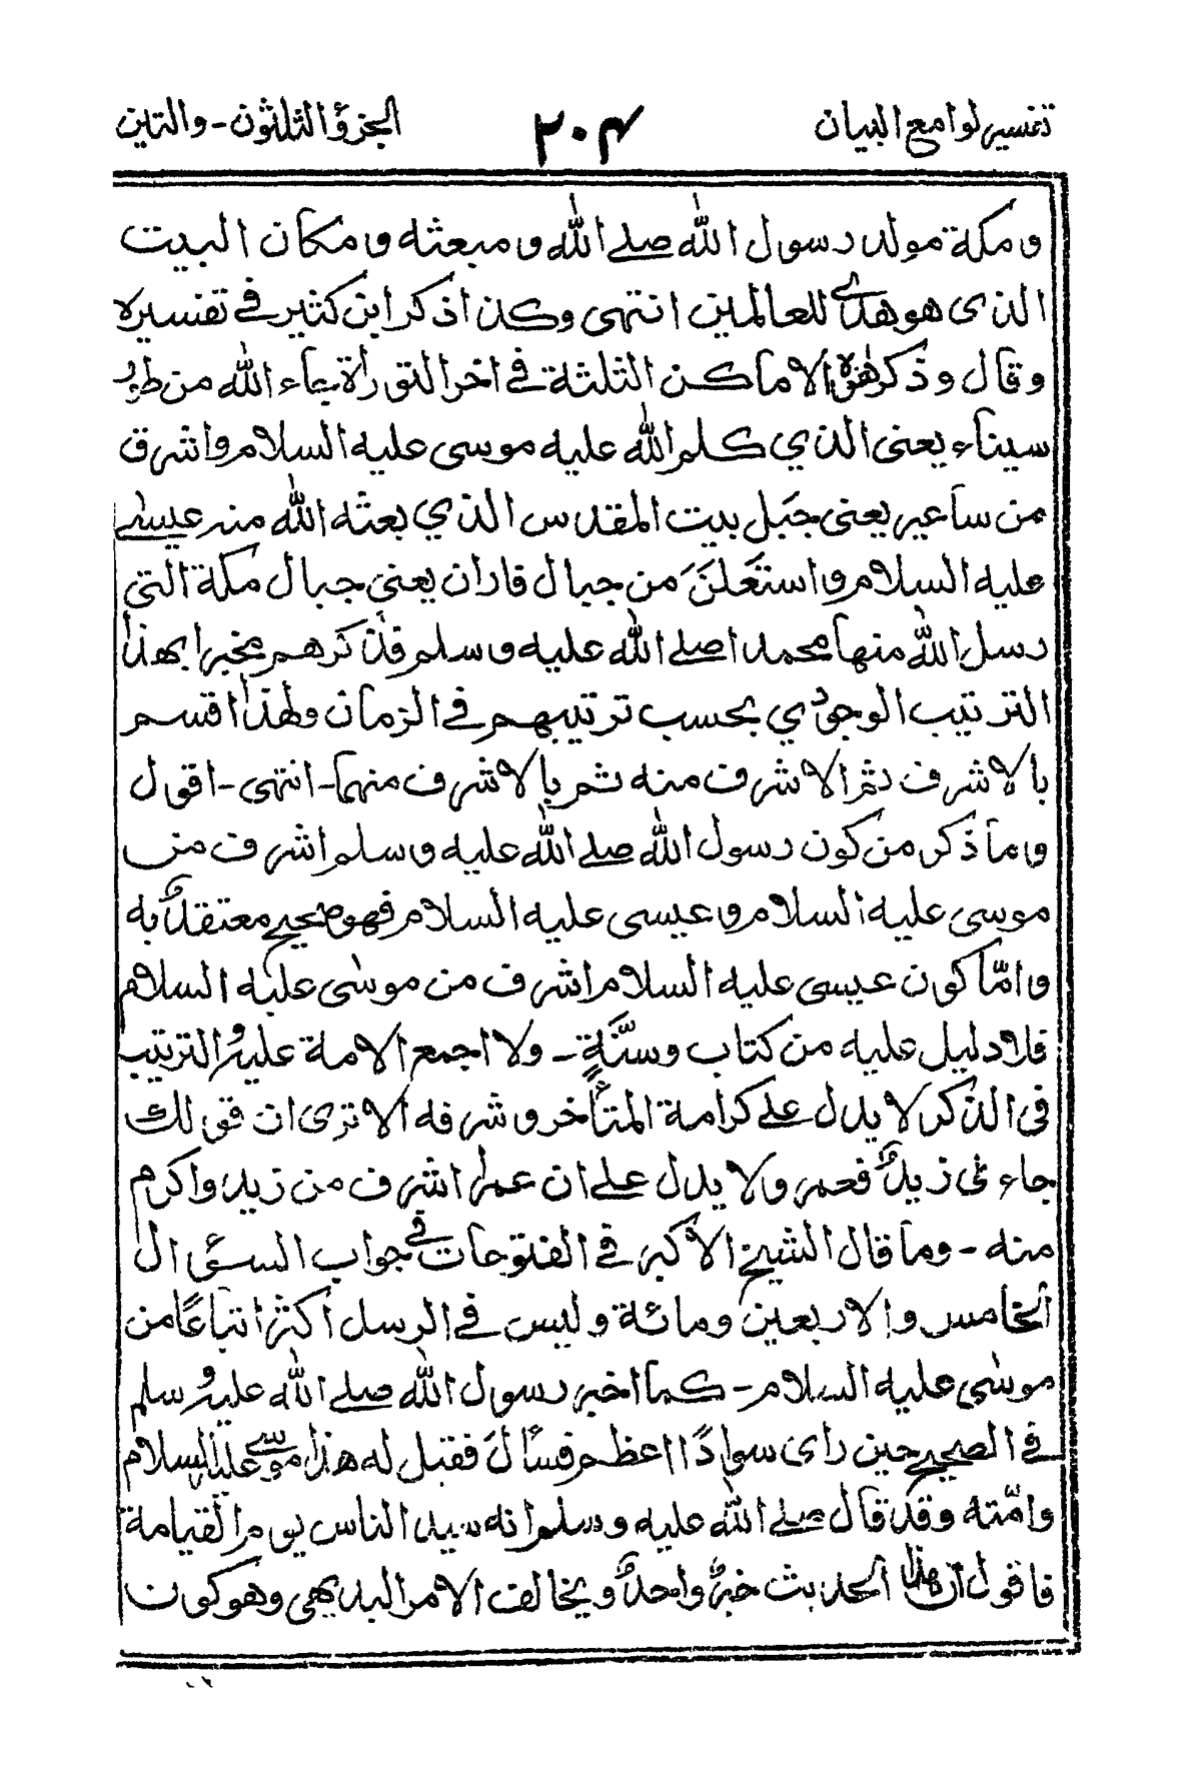 تفسير لوامع البيان ٢٠٤ الجزؤ الثلثون - والتين
ومكة مولد رسول الله صلے الله ومبعثه ومكان البيت
الذى هو هدًى للعالمين انتهى وكذا ذكر ابن كثير فے تفسيره
وقال وذكر هٰذه الاماكن الثلثة فے اخر التوراة جاء الله من طور
سيناء يعنى الذي كلم الله عليه موسى عليه السلام واشرق
من ساعير يعنى جَبل بيت المقدس الذي بعثه الله منه عيسےٰ
عليه السلام واستَعلَنَ من جبال فاران يعنى جبال مكة التى
رسل الله منها محمدا صلے الله عليه وسلم فذكرهم مخبرا بهذا
الترتيب الوجودي بحسب ترتيبهم فے الزمان ولهذا اقسم
بالاشرف ثم الاشرف منه ثم بالاشرف منهما - انتهى - اقول
وما ذكر من كون رسول الله صلے الله عليه وسلم اشرف من
موسى عليه السلام وعيسى عليه السلام فهو صحيح معتقدٌ به
وامّا كون عيسى عليه السلام اشرف من موسٰى عليه السلام
فلا دليل عليه من كتاب وسنّةٍ - ولا اجمع الامة عليه والترتيب
فى الذكر لا يدل علے كرامة المتأخر وشرفه الا ترى ان قولك
جاءنى زيدٌ فعمر ولا يدل علے ان عمرا اشرف من زيد واكرم
منه - وما قال الشيخ الأكبر فے الفتوحات فے جواب السئوال
الخامس والاربعين ومائة وليس فے الرسل أكثر اتباعًا من
موسٰى عليه السلام - كما اخبر رسول الله صلے الله عليه وسلم
فے الصحيح حين راى سوادًا اعظم فسأل فقيل له هذا موسےٰ عليه السلام
وامّته وقد قال صلے الله عليه وسلم انه سيد الناس يوم القيامة
فاقول ان هذا الحديث خبرٌ واحدٌ ويخالف الامر البديهى وهو كون